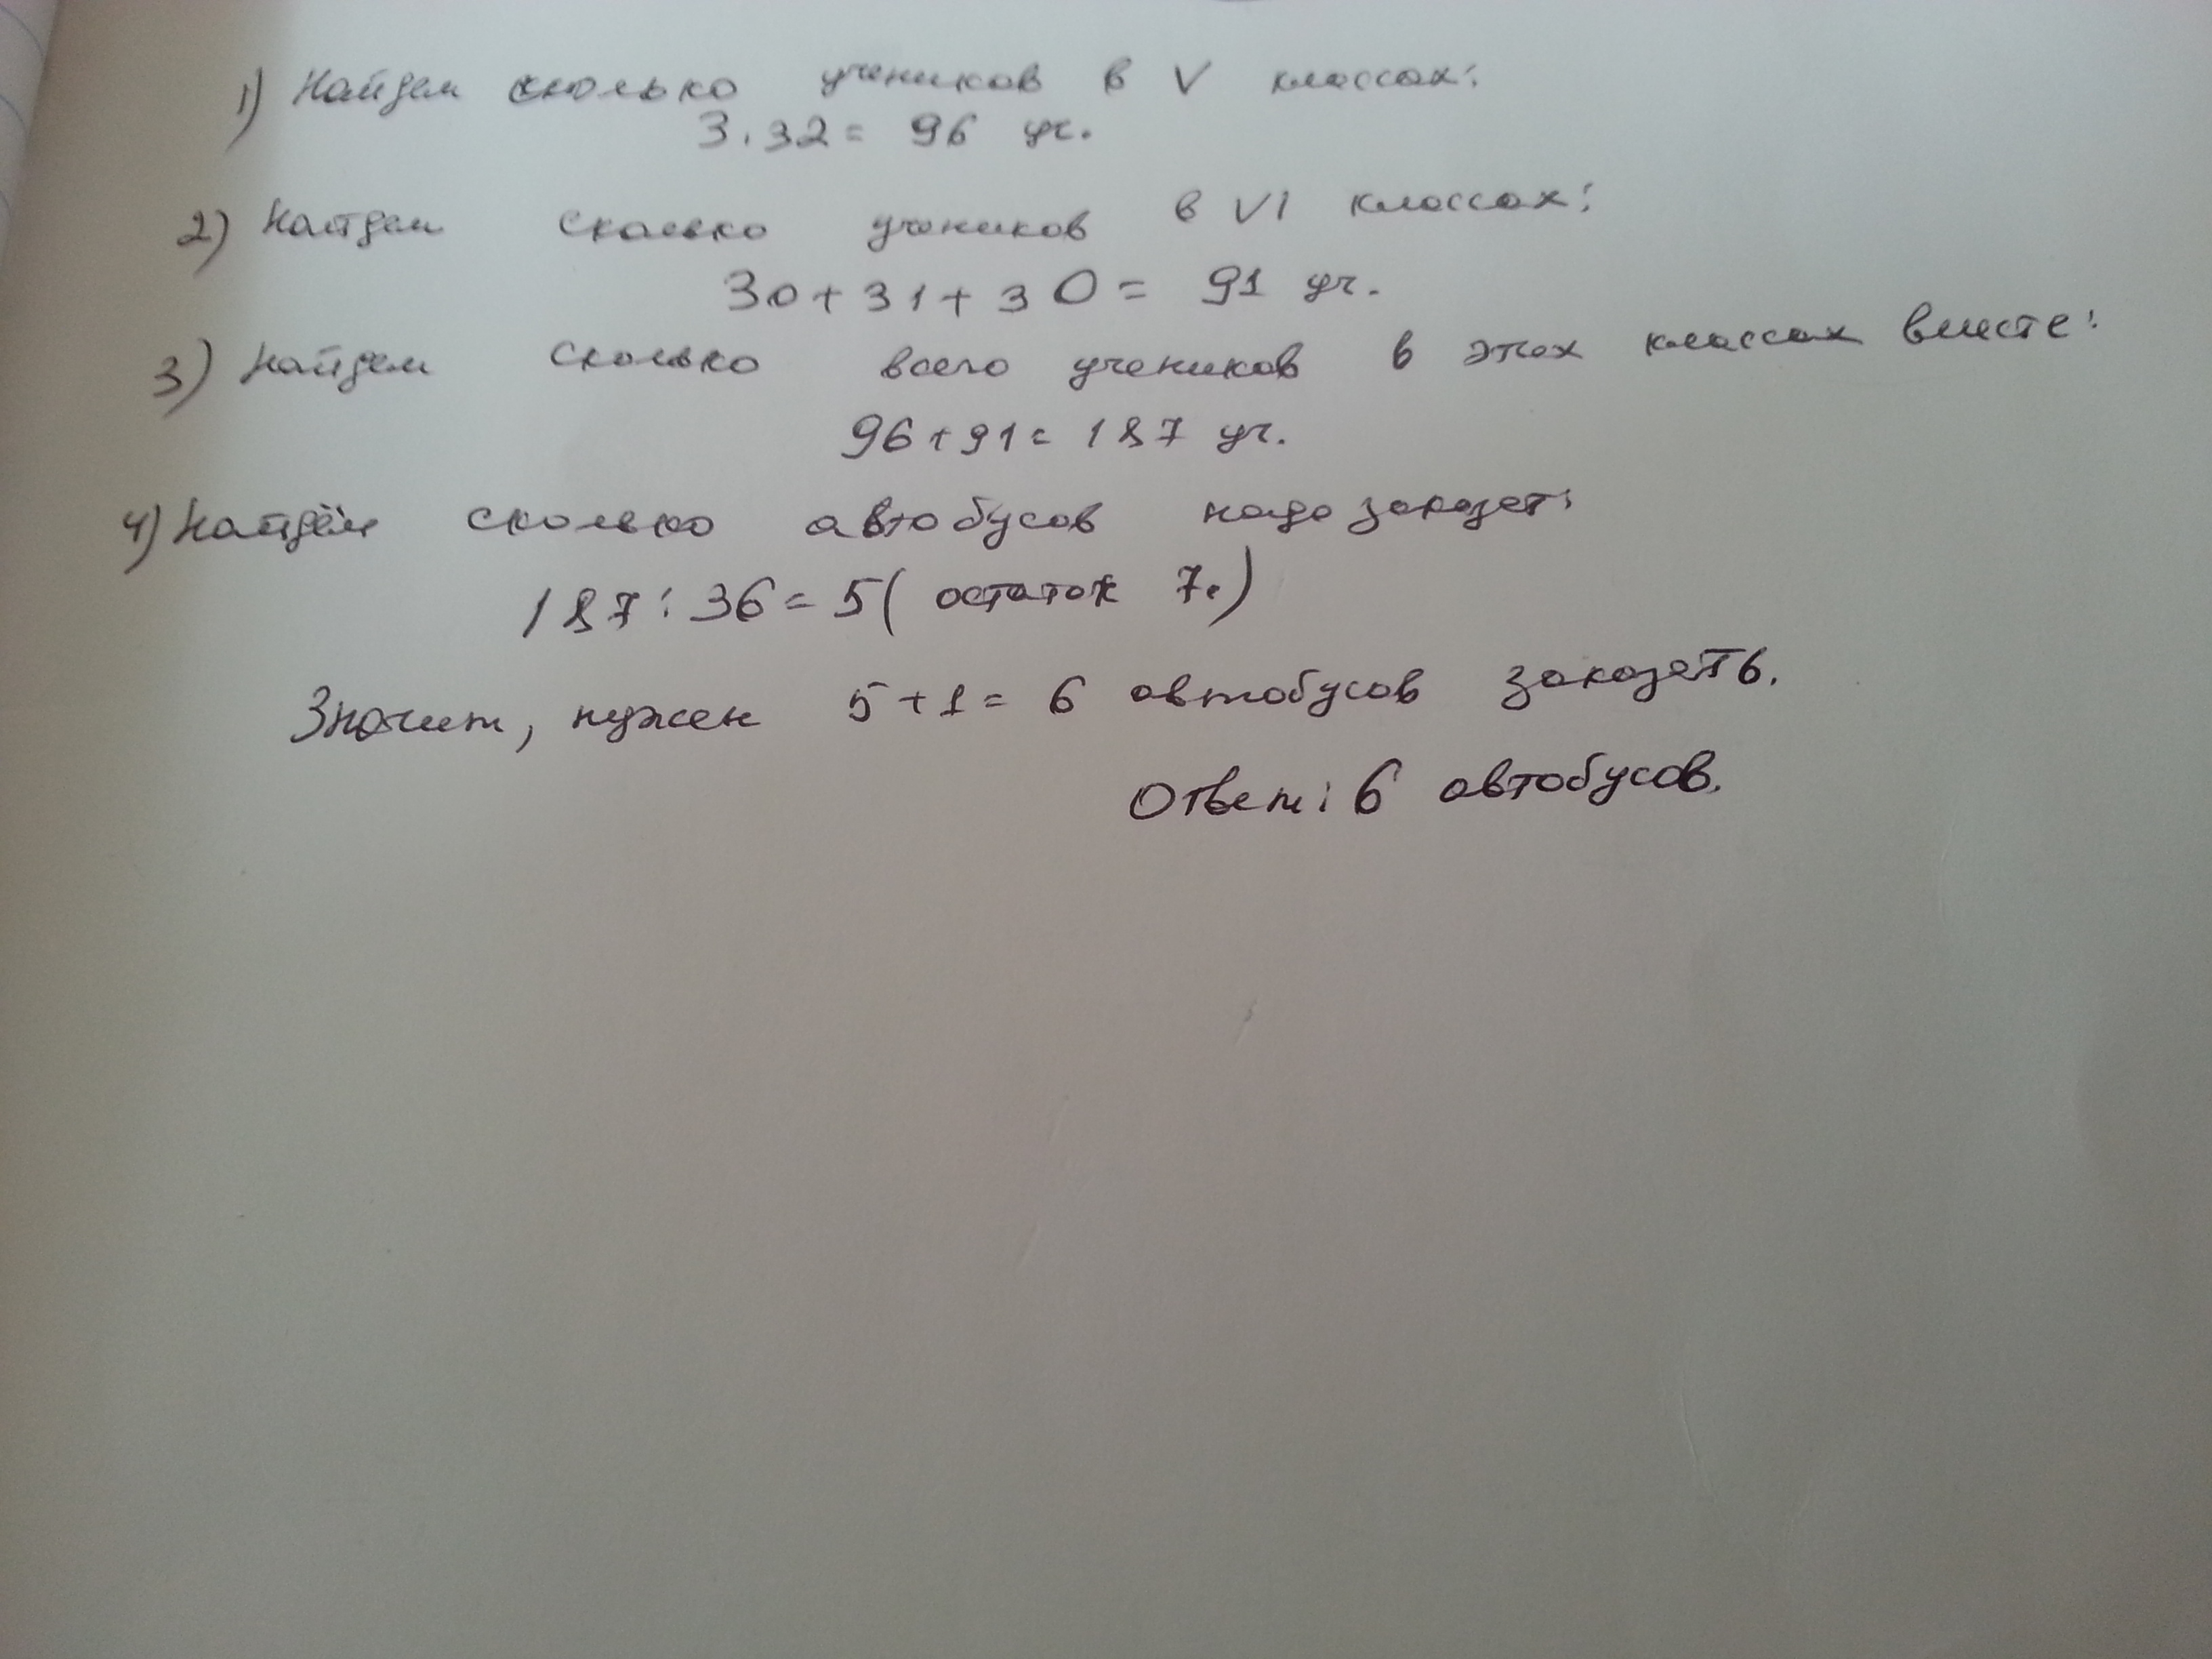 1) Найдем сколько учеников в V классах:
3·32= 96 уч.
2) Найдем сколько учеников в VI классах:
30+31+30= 91 уч.
3) Найдем сколько всего учеников в этох классах вместе:
96+91= 187 уч.
4) Найдём сколько автобусов надо заказет:
187:36=5( остаток 7.)
Значит, нужен 5+1= 6 автобусов заказеть.
Ответ: 6 автобусов.